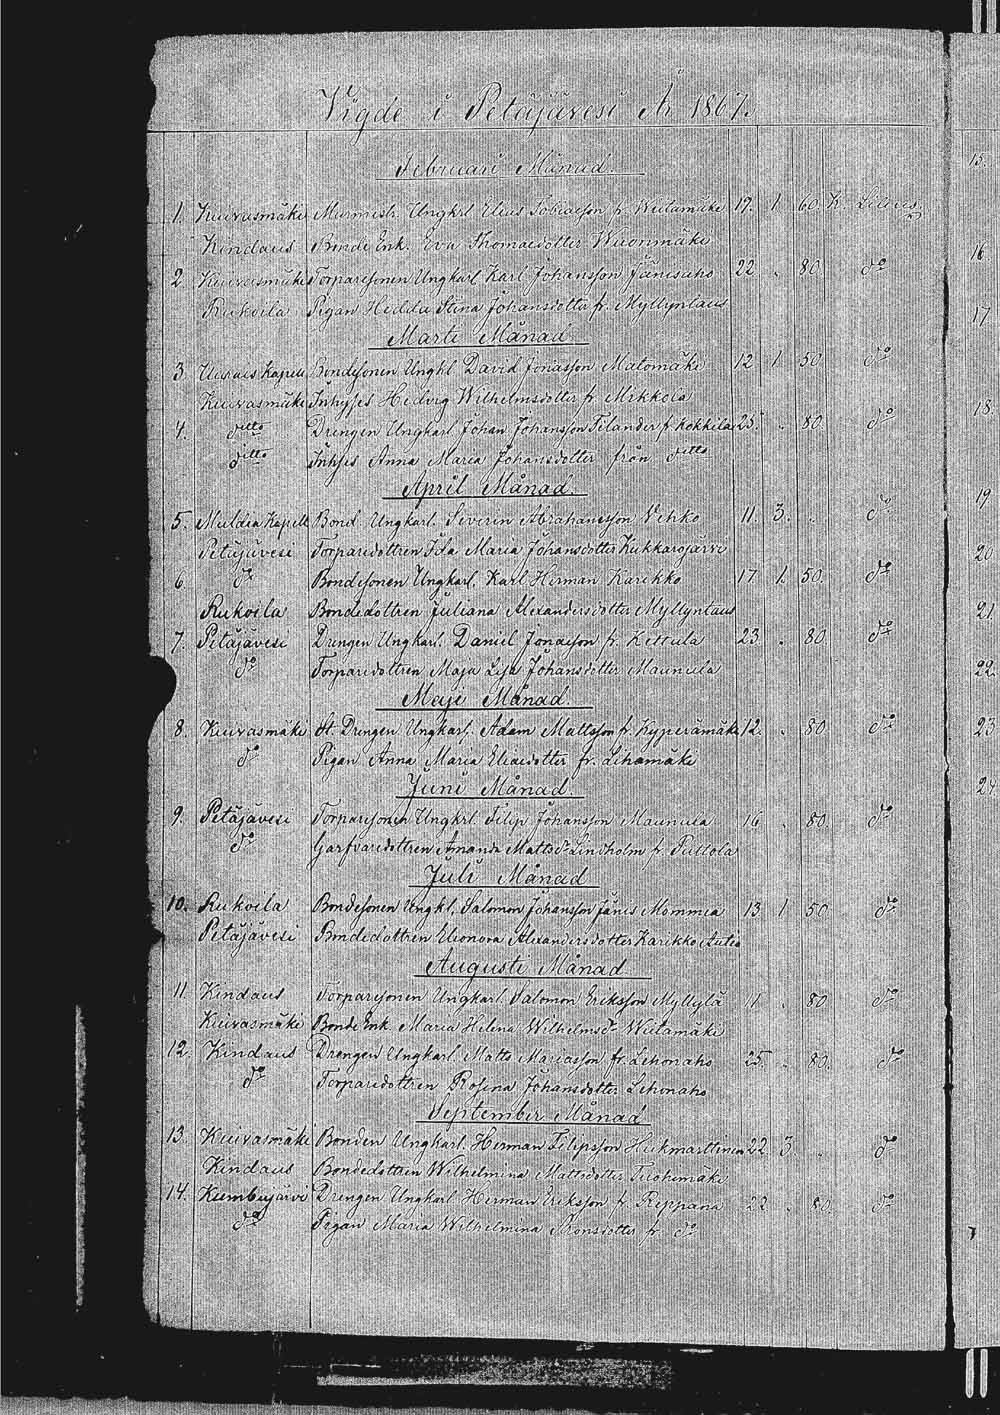 Vigde i Petäjävesi År 1867.
Februari Månad.
1. Kuivasmäki Murmest. Ungkrl Elias Tobiaesson fr. Wiitamäki 17. 1 60 K.
Kindaus Bonde Enk. Eva Thomaedotter Wuorimäki
2 Kuivasmäki Torparesonen Ungkarl Karl Johansson Jänisaho 22 " 80 do
Rukoila Pigan Hedda Stina Johansdotter fr. Myllyntaus
Marti Månad.
3 Kapell Bondesonen Unghl David Jonasson Matomäki 12 1 50 do
Kuivasmäki Inhyses Hedvig Wilhelmsdotter fr Mikkola
4. ditto Drengen Ungkarl Johan Johansson Filander fr Kokkila 25. " 80 do
ditto Inhyses Anna Maria Johansdotter från ditto
April Månad.
5. Muldia Kapell Bond. Ungkarl. Severin Abrahamsson Vehko 11. 3. " do
Petäjävesi Torparedottren Ida Maria Johansdotter Kukkarojärvi
6 do Bondesonen Ungkarl. Karl Herman Karikko 17 1. 50. do
Rukoila Bondedottren Juliana Alexandersdotter Myllyntaus
7. Petäjävesi Drengen Ungkarl. Daniel Jonasson fr. Kettula 23 " 80 do
do Torparedottren Maja Lisa Johansdotter Maunula
Maji Månad.
8. Kuivasmäki At. Drengen Ungkarl. Adam Mattsson fr. Kypperämäki 12. " 80 do
do Pigan Anna Maria Eliaedotter fr. Lihamäki
Juni Månad.
9. Petäjävesi Torparesonen Ungkrl. Filip Johansson Maunula 16 " 80 do
do Garfvaredottren Amanda Mattsdr Lindholm fr. Puttola
Juli Månad
10. Rukoila Bondesonen Ungkl. Salomon Johansson Jänis Mommia 13 1 50 do
Petäjävesi Bondedottren Eleonora Alexandersdotter Karikko Autio
Augusti Månad
11. Kindaus Torparesonen Ungkarl. Salomon Eriksson Myllylä 11 " 80 do
Kuivasmäki Bonde Enk. Maria Helena Wilhelmsdr Wiitamäki
12. Kindaus Drengen Ungkarl. Matts Mariasson fr. Lehonaho 25. " 80. do
do Torparedottren Rosina Johansdotter Lehonaho
September Månad
13. Kuivasmäki Bonden Ungkarl. Herman Filipsson 22 3 " do
Kindaus Bondedottren Wilhelmina Mattsdotter
14. Kumbujärvi Drengen Ungkarl Herman Eriksson fr. Reppana 22 " 80. do
do Pigan Maria Wilhelmina Aronsdotter fr. do
15.
16
17
18.
19
20
21
22
23
24